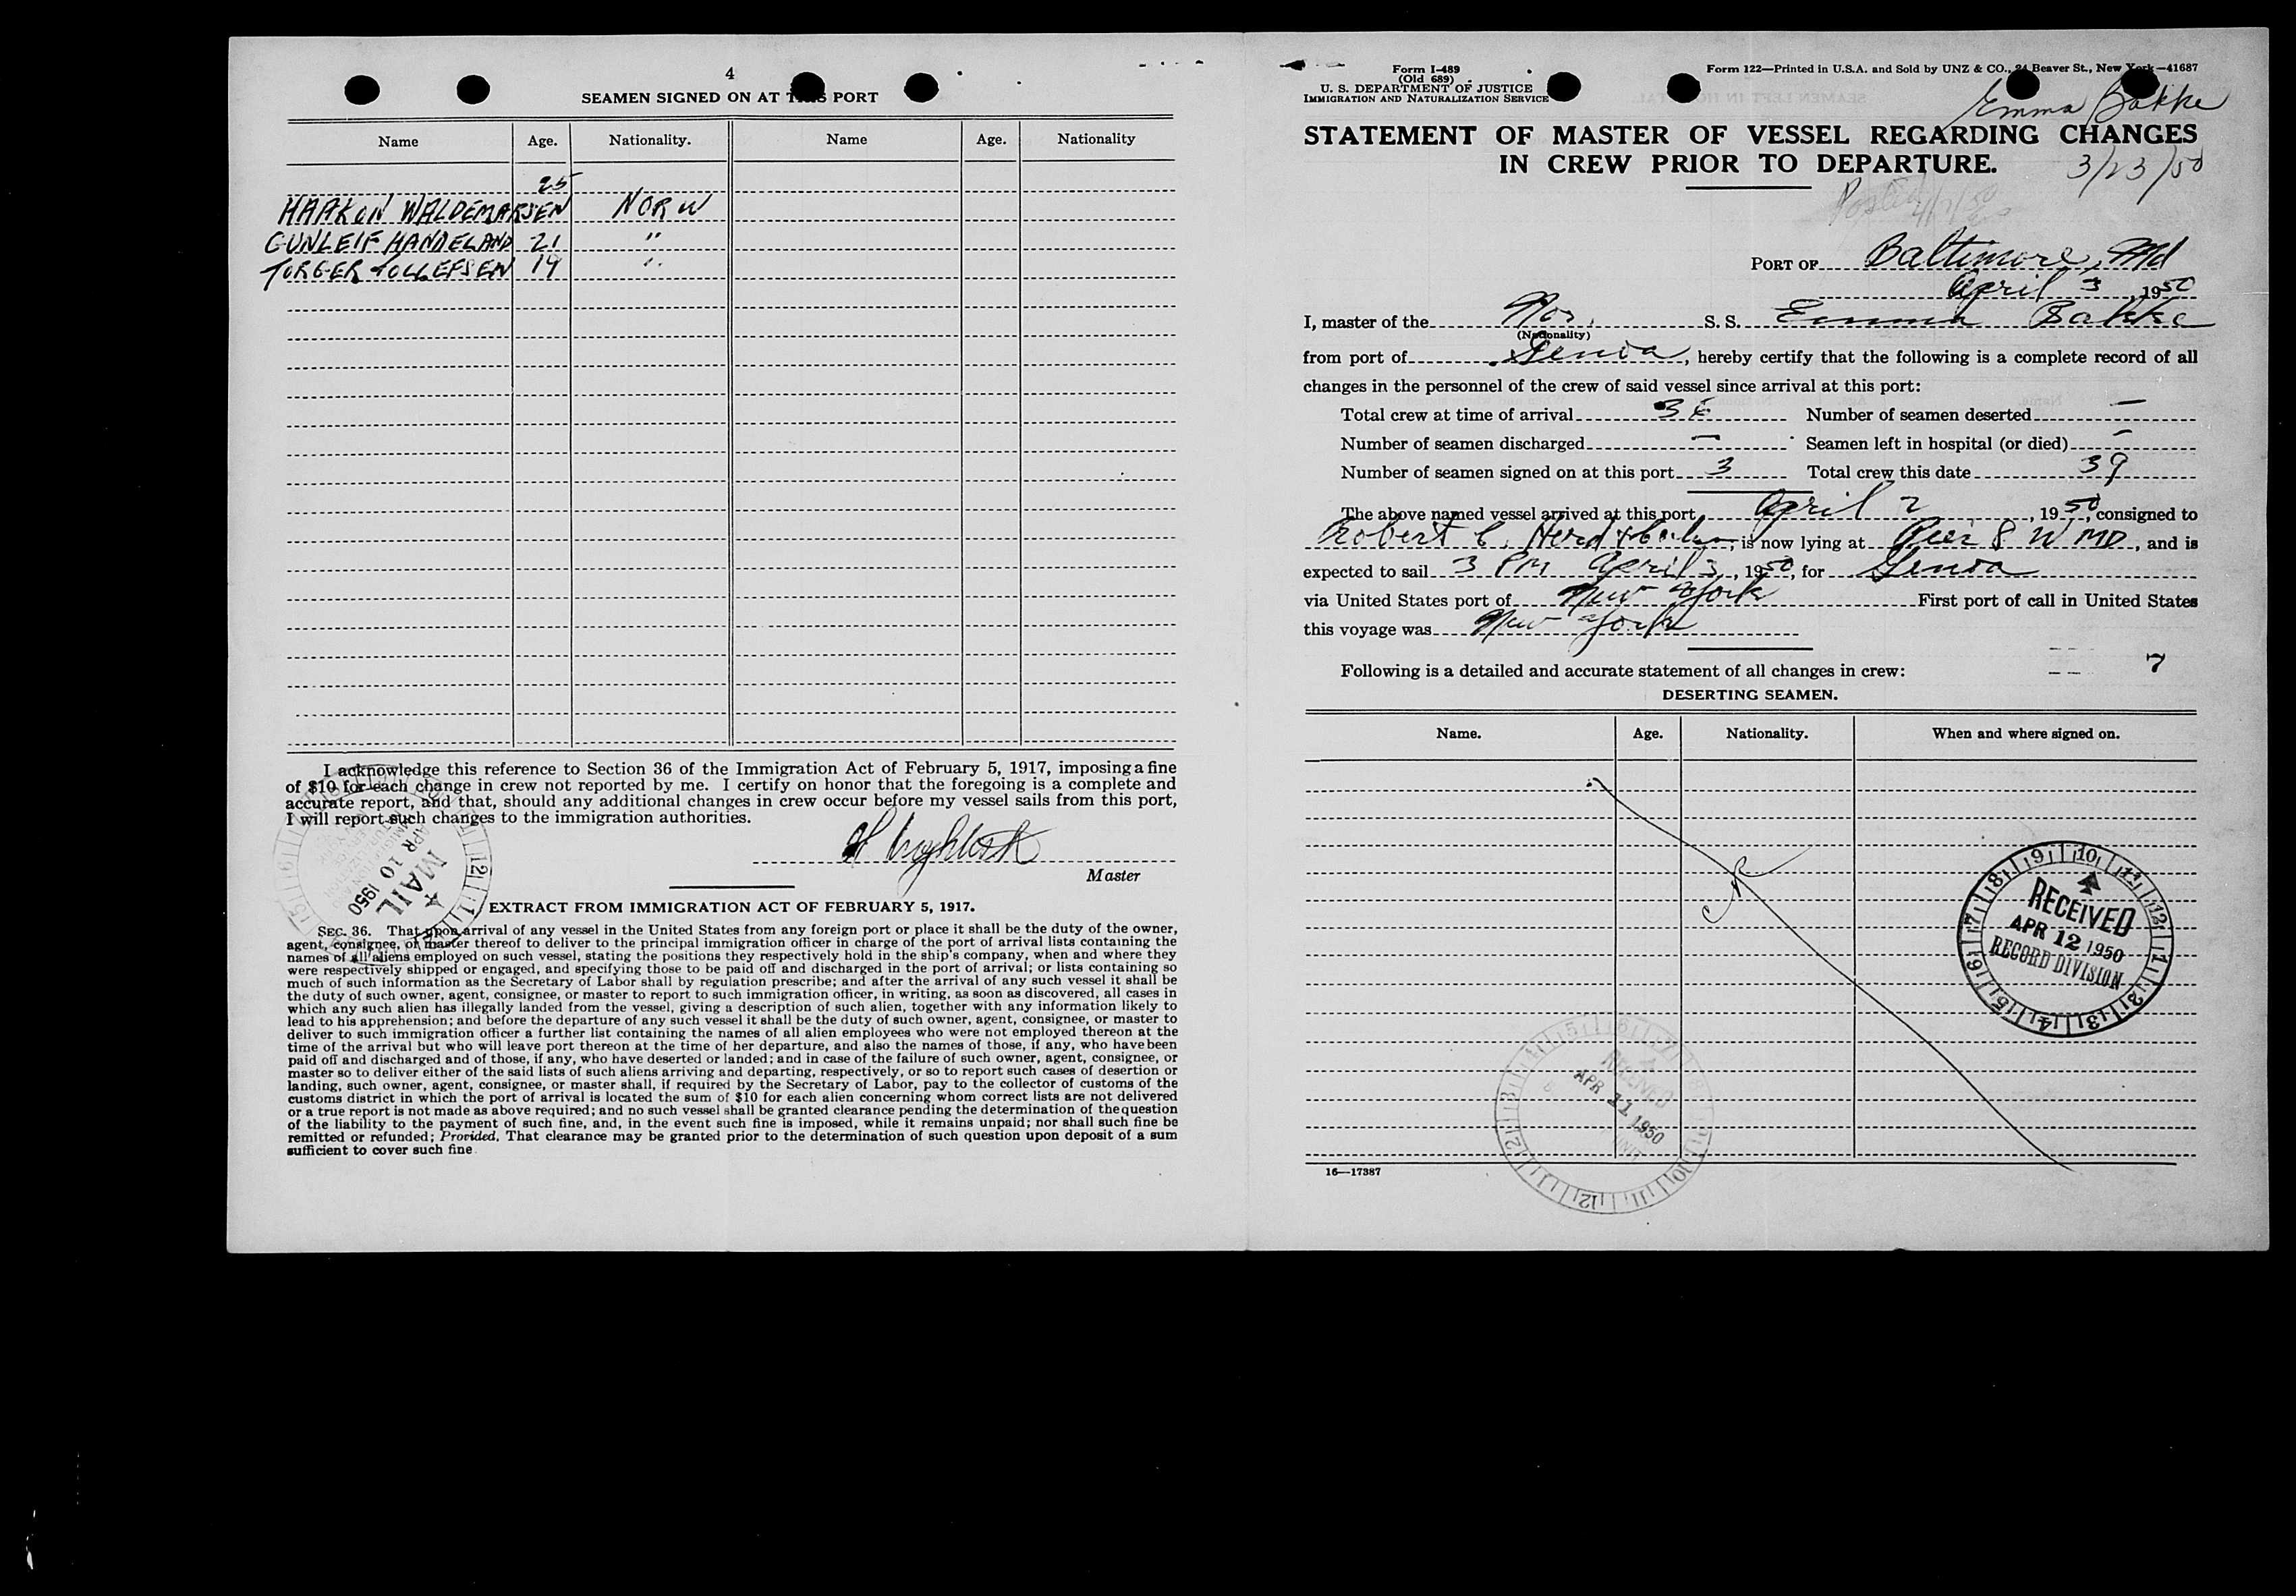 4
SEAMEN SIGNED ON AT THIS PORT
Name Age. Nationality. Name Age. Nationality
25
HAAKON WALDEMARSEN NORW
GUNLEIF HANDELAND 21 "
TORGER TOLLEFSEN 19 "
I acknowledge this reference to Section 36 of the Immigration Act of February 5, 1917, imposing a fine
of $10 for each change in crew not reported by me. I certify on honor that the foregoing is a complete and
accurate report, and that, should any additional changes in crew occur before my vessel sails from this port,
I will report such changes to the immigration authorities.
Master
MAIL
APR 10 1950
EXTRACT FROM IMMIGRATION ACT OF FEBRUARY 5, 1917.
SEC. 36. That upon arrival of any vessel in the United States from any foreign port or place it shall be the duty of the owner,
agent, consignee, or master thereof to deliver to the principal immigration officer in charge of the port of arrival lists containing the
names of all aliens employed on such vessel, stating the positions they respectively hold in the ship's company, when and where they
were respectively shipped or engaged, and specifying those to be paid off and discharged in the port of arrival; or lists containing so
much of such information as the Secretary of Labor shall by regulation prescribe; and after the arrival of any such vessel it shall be
the duty of such owner, agent, consignee, or master to report to such immigration officer, in writing, as soon as discovered, all cases in
which any such alien has illegally landed from the vessel, giving a description of such alien, together with any information likely to
lead to his apprehension; and before the departure of any such vessel it shall be the duty of such owner, agent, consignee, or master to
deliver to such immigration officer a further list containing the names of all alien employees who were not employed thereon at the
time of the arrival but who will leave port thereon at the time of her departure, and also the names of those, if any, who have been
paid off and discharged and of those, if any, who have deserted or landed; and in case of the failure of such owner, agent, consignee, or
master so to deliver either of the said lists of such aliens arriving and departing, respectively, or so to report such cases of desertion or
landing, such owner, agent, consignee, or master shall, if required by the Secretary of Labor, pay to the collector of customs of the
customs district in which the port of arrival is located the sum of $10 for each alien concerning whom correct lists are not delivered
or a true report is not made as above required; and no such vessel shall be granted clearance pending the determination of the question
of the liability to the payment of such fine, and, in the event such fine is imposed, while it remains unpaid; nor shall such fine be
remitted or refunded; Provided, That clearance may be granted prior to the determination of such question upon deposit of a sum
sufficient to cover such fine
Form I-489
(Old 689)
U. S. DEPARTMENT OF JUSTICE
IMMIGRATION AND NATURALIZATION SERVICE
Form 122—Printed in U.S.A. and Sold by UNZ & CO., 24 Beaver St., New York—41687
Emma Bakke
STATEMENT OF MASTER OF VESSEL REGARDING CHANGES
IN CREW PRIOR TO DEPARTURE.
3/23/50
Posted
PORT OF Baltimore, Md
April 3, 1950
I, master of the Nor. S. S. Emma Bakke
(Nationality)
from port of Genoa, hereby certify that the following is a complete record of all
changes in the personnel of the crew of said vessel since arrival at this port:
Total crew at time of arrival 36 Number of seamen deserted —
Number of seamen discharged — Seamen left in hospital (or died) —
Number of seamen signed on at this port 3 Total crew this date 39
The above named vessel arrived at this port April 2, 1950, consigned to
Robert C. Herd, is now lying at Pier 8 W MD, and is
expected to sail 3 PM April 3, 1950, for Genoa
via United States port of New York First port of call in United States
this voyage was New York
7
Following is a detailed and accurate statement of all changes in crew:
DESERTING SEAMEN.
Name. Age. Nationality. When and where signed on.
RECEIVED
APR 12 1950
RECORD DIVISION
RECEIVED
APR 11 1950
UNIT
16—17387